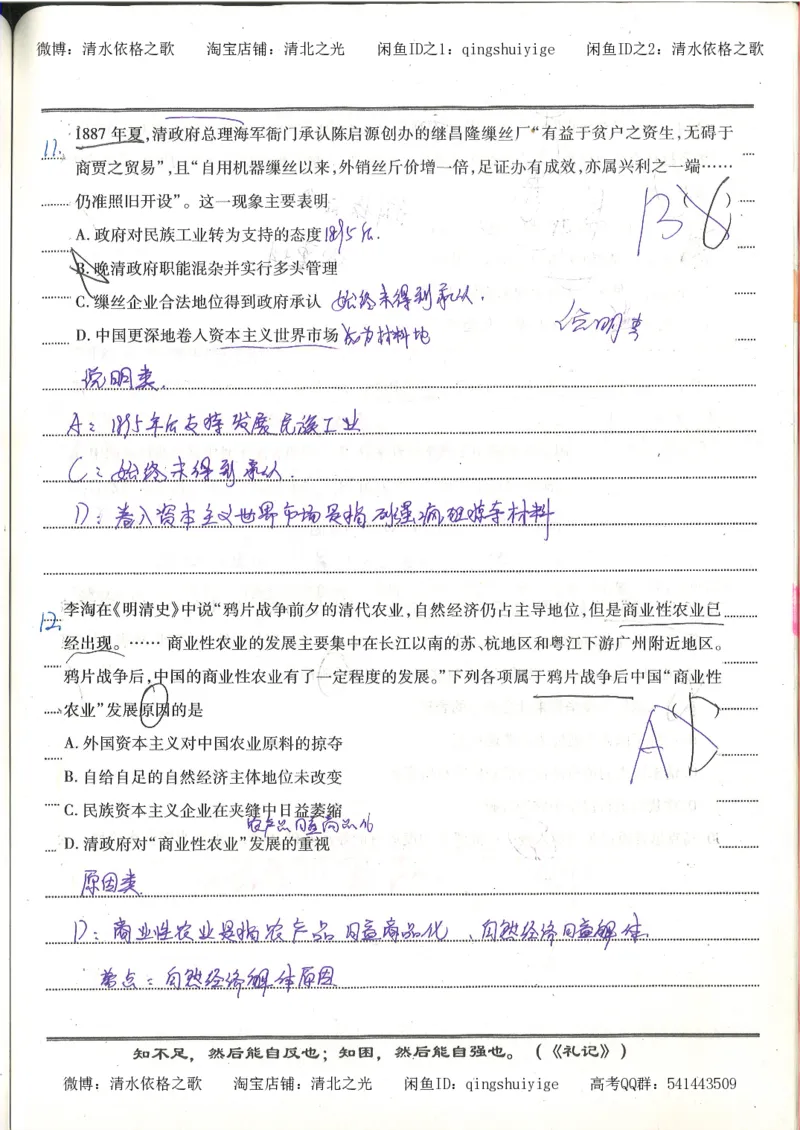 微博：清水依格之歌 淘宝店铺：清北之光 闲鱼ID之1：qingshuiyige 闲鱼ID之2：清水依格之歌
11.
1887 年夏,清政府总理海军衙门承认陈启源创办的继昌隆缫丝厂“有益于贫户之资生,无碍于
商贾之贸易”,且“自用机器缫丝以来,外销丝斤价增一倍,足证办有成效,亦属兴利之一端……
仍准照旧开设”。这一现象主要表明
A. 政府对民族工业转为支持的态度 1895后.
B. 晚清政府职能混杂并实行多头管理
C. 缫丝企业合法地位得到政府承认 始终未得到承认.
D. 中国更深地卷入资本主义世界市场 成为材料地
B
说明类
说明类.
A：1895年后支持发展民族工业
C：始终未得到承认.
D：卷入资本主义世界市场是指列强疯狂掠夺材料
12.
李洵在《明清史》中说“鸦片战争前夕的清代农业,自然经济仍占主导地位,但是商业性农业已
经出现。…… 商业性农业的发展主要集中在长江以南的苏、杭地区和粤江下游广州附近地区。
鸦片战争后,中国的商业性农业有了一定程度的发展。”下列各项属于鸦片战争后中国“商业性
农业”发展原因的是
A. 外国资本主义对中国农业原料的掠夺
B. 自给自足的自然经济主体地位未改变
C. 民族资本主义企业在夹缝中日益萎缩
农产品日益商品化
D. 清政府对“商业性农业”发展的重视
A D
原因类
D：商业性农业是指农产品日益商品化、自然经济日益解体.
考点：自然经济解体原因
知不足，然后能自反也；知困，然后能自强也。（《礼记》）
微博：清水依格之歌 淘宝店铺：清北之光 闲鱼ID：qingshuiyige 高考QQ群：541443509